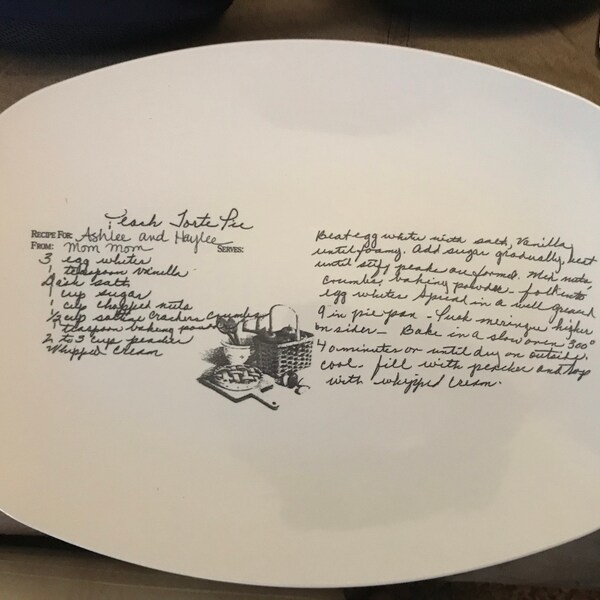 Peach Torte Pie
RECIPE FOR: Ashlee and Haylee
FROM: Mom Mom SERVES:
3 egg whites
1 teaspoon vanilla
Dash salt
1 cup sugar
1 cup chopped nuts
1/2 cup saltine crackers crumbs
1 teaspoon baking powder
2 to 3 cups peaches
Whipped cream
Beat egg white with salt, Vanilla
until foamy. Add sugar gradually, beat
until stiff peaks are formed. Mix nuts,
crumbs, baking powder - fold into
egg whites Spread in a well greased
9 in pie pan - Push meringue higher
on sides - Bake in a slow oven 300°
40 minutes or until dry on outside.
cool. fill with peaches and top
with whipped cream.